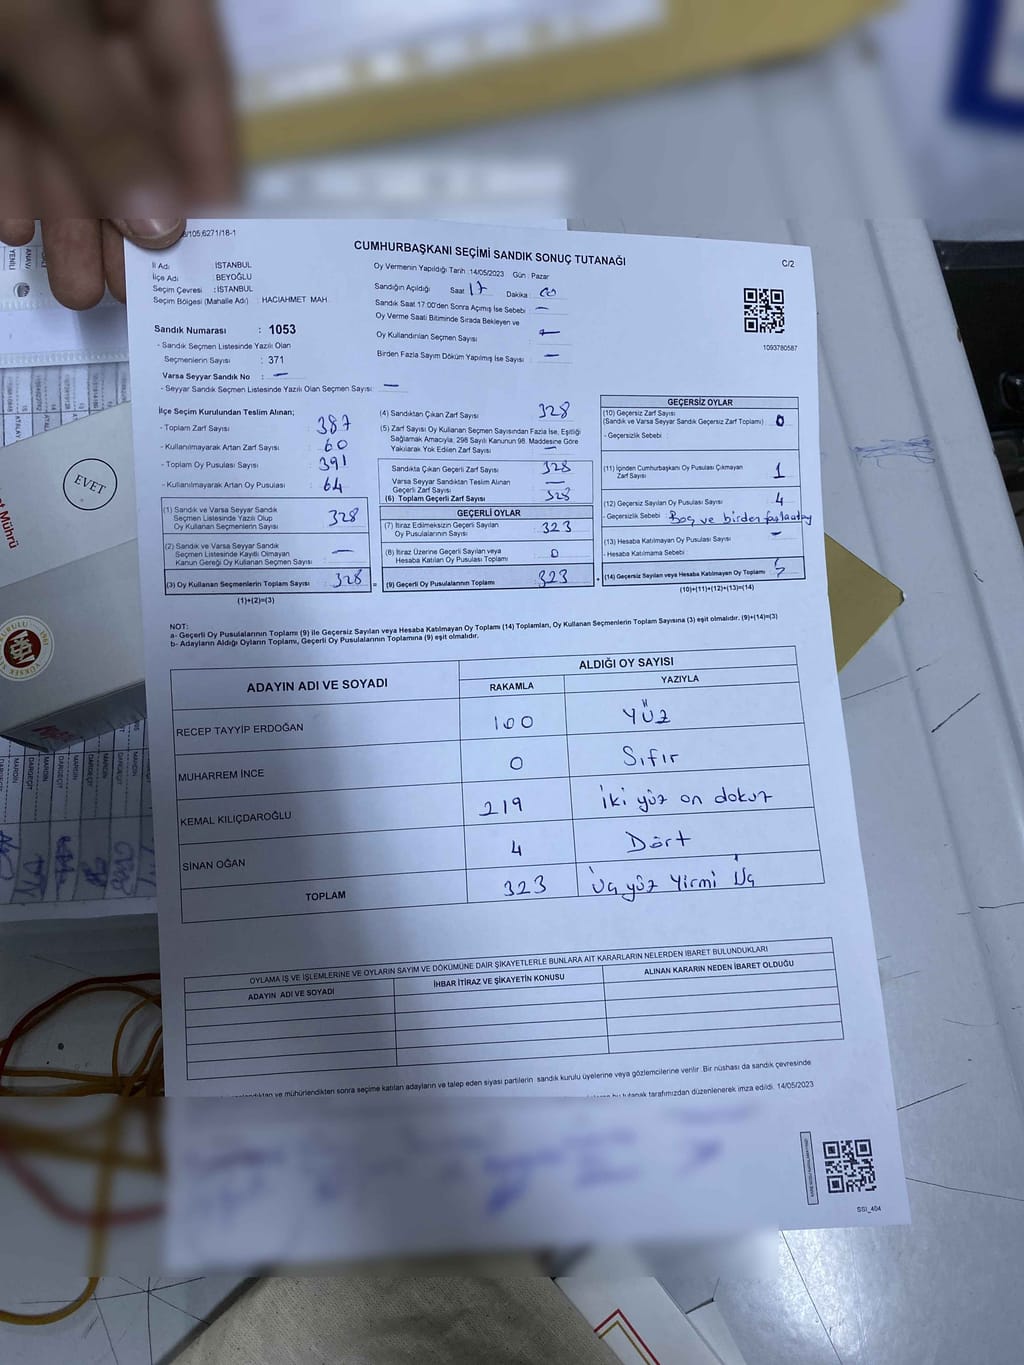 8/105,6271/18-1
CUMHURBAŞKANI SEÇİMİ SANDIK SONUÇ TUTANAĞI
C/2
İl Adı : İSTANBUL
İlçe Adı : BEYOĞLU
Seçim Çevresi : İSTANBUL
Seçim Bölgesi (Mahalle Adı) : HACIAHMET MAH.
Sandık Numarası : 1053
- Sandık Seçmen Listesinde Yazılı Olan
Seçmenlerin Sayısı : 371
Varsa Seyyar Sandık No : —
- Seyyar Sandık Seçmen Listesinde Yazılı Olan Seçmen Sayısı: —
Oy Vermenin Yapıldığı Tarih :14/05/2023 Gün : Pazar
Sandığın Açıldığı Saat 17 Dakika 00
Sandık Saat 17:00'den Sonra Açılmış İse Sebebi : —
Oy Verme Saati Bitiminde Sırada Bekleyen ve
Oy Kullandırılan Seçmen Sayısı : —
Birden Fazla Sayım Döküm Yapılmış İse Sayısı : —
1093780587
İlçe Seçim Kurulundan Teslim Alınan;
- Toplam Zarf Sayısı : 387
- Kullanılmayarak Artan Zarf Sayısı : 60
- Toplam Oy Pusulası Sayısı : 391
- Kullanılmayarak Artan Oy Pusulası : 64
(1) Sandık ve Varsa Seyyar Sandık
Seçmen Listesinde Yazılı Olup
Oy Kullanan Seçmenlerin Sayısı 328
(2) Sandık ve Varsa Seyyar Sandık
Seçmen Listesinde Kayıtlı Olmayan
Kanun Gereği Oy Kullanan Seçmen Sayısı —
(3) Oy Kullanan Seçmenlerin Toplam Sayısı : 328 =
(1)+(2)=(3)
(4) Sandıktan Çıkan Zarf Sayısı : 328
(5) Zarf Sayısı Oy Kullanan Seçmen Sayısından Fazla İse, Eşitliği
Sağlamak Amacıyla, 298 Sayılı Kanunun 98. Maddesine Göre
Yakılarak Yok Edilen Zarf Sayısı : —
Sandıkta Çıkan Geçerli Zarf Sayısı : 328
Varsa Seyyar Sandıktan Teslim Alınan
Geçerli Zarf Sayısı : —
(6) Toplam Geçerli Zarf Sayısı : 328
GEÇERLİ OYLAR
(7) İtiraz Edilmeksizin Geçerli Sayılan
Oy Pusulalarının Sayısı : 323
(8) İtiraz Üzerine Geçerli Sayılan veya
Hesaba Katılan Oy Pusulası Toplamı : 0
(9) Geçerli Oy Pusulalarının Toplamı : 323 +
GEÇERSİZ OYLAR
(10) Geçersiz Zarf Sayısı
(Sandık ve Varsa Seyyar Sandık Geçersiz Zarf Toplamı) : 0
- Geçersizlik Sebebi :
(11) İçinden Cumhurbaşkanı Oy Pusulası Çıkmayan
Zarf Sayısı : 1
(12) Geçersiz Sayılan Oy Pusulası Sayısı : 4
- Geçersizlik Sebebi : Boş ve birden fazla
(13) Hesaba Katılmayan Oy Pusulası Sayısı : —
- Hesaba Katılmama Sebebi :
(14) Geçersiz Sayılan veya Hesaba Katılmayan Oy Toplamı : 5
(10)+(11)+(12)+(13)=(14)
NOT:
a- Geçerli Oy Pusulalarının Toplamı (9) ile Geçersiz Sayılan veya Hesaba Katılmayan Oy Toplamı (14) Toplamları, Oy Kullanan Seçmenlerin Toplam Sayısına (3) eşit olmalıdır. (9)+(14)=(3)
b- Adayların Aldığı Oyların Toplamı, Geçerli Oy Pusulalarının Toplamına (9) eşit olmalıdır.
ADAYIN ADI VE SOYADI ALDIĞI OY SAYISI
RAKAMLA YAZIYLA
RECEP TAYYİP ERDOĞAN 100 Yüz
MUHARREM İNCE 0 Sıfır
KEMAL KILIÇDAROĞLU 219 iki yüz on dokuz
SİNAN OĞAN 4 Dört
TOPLAM 323 Üç yüz Yirmi Üç
OYLAMA İŞ VE İŞLEMLERİNE VE OYLARIN SAYIM VE DÖKÜMÜNE DAİR ŞİKAYETLERLE BUNLARA AİT KARARLARIN NELERDEN İBARET BULUNDUKLARI
ADAYIN ADI VE SOYADI İHBAR İTİRAZ VE ŞİKAYETİN KONUSU ALINAN KARARIN NEDEN İBARET OLDUĞU
ve mühürlendikten sonra seçime katılan adayların ve talep eden siyasi partilerin sandık kurulu üyelerine veya gözlemcilerine verilir. Bir nüshası da sandık çevresinde
bu tutanak tarafımızdan düzenlenerek imza edildi. 14/05/2023
SSİ_404
EVET
Mührü